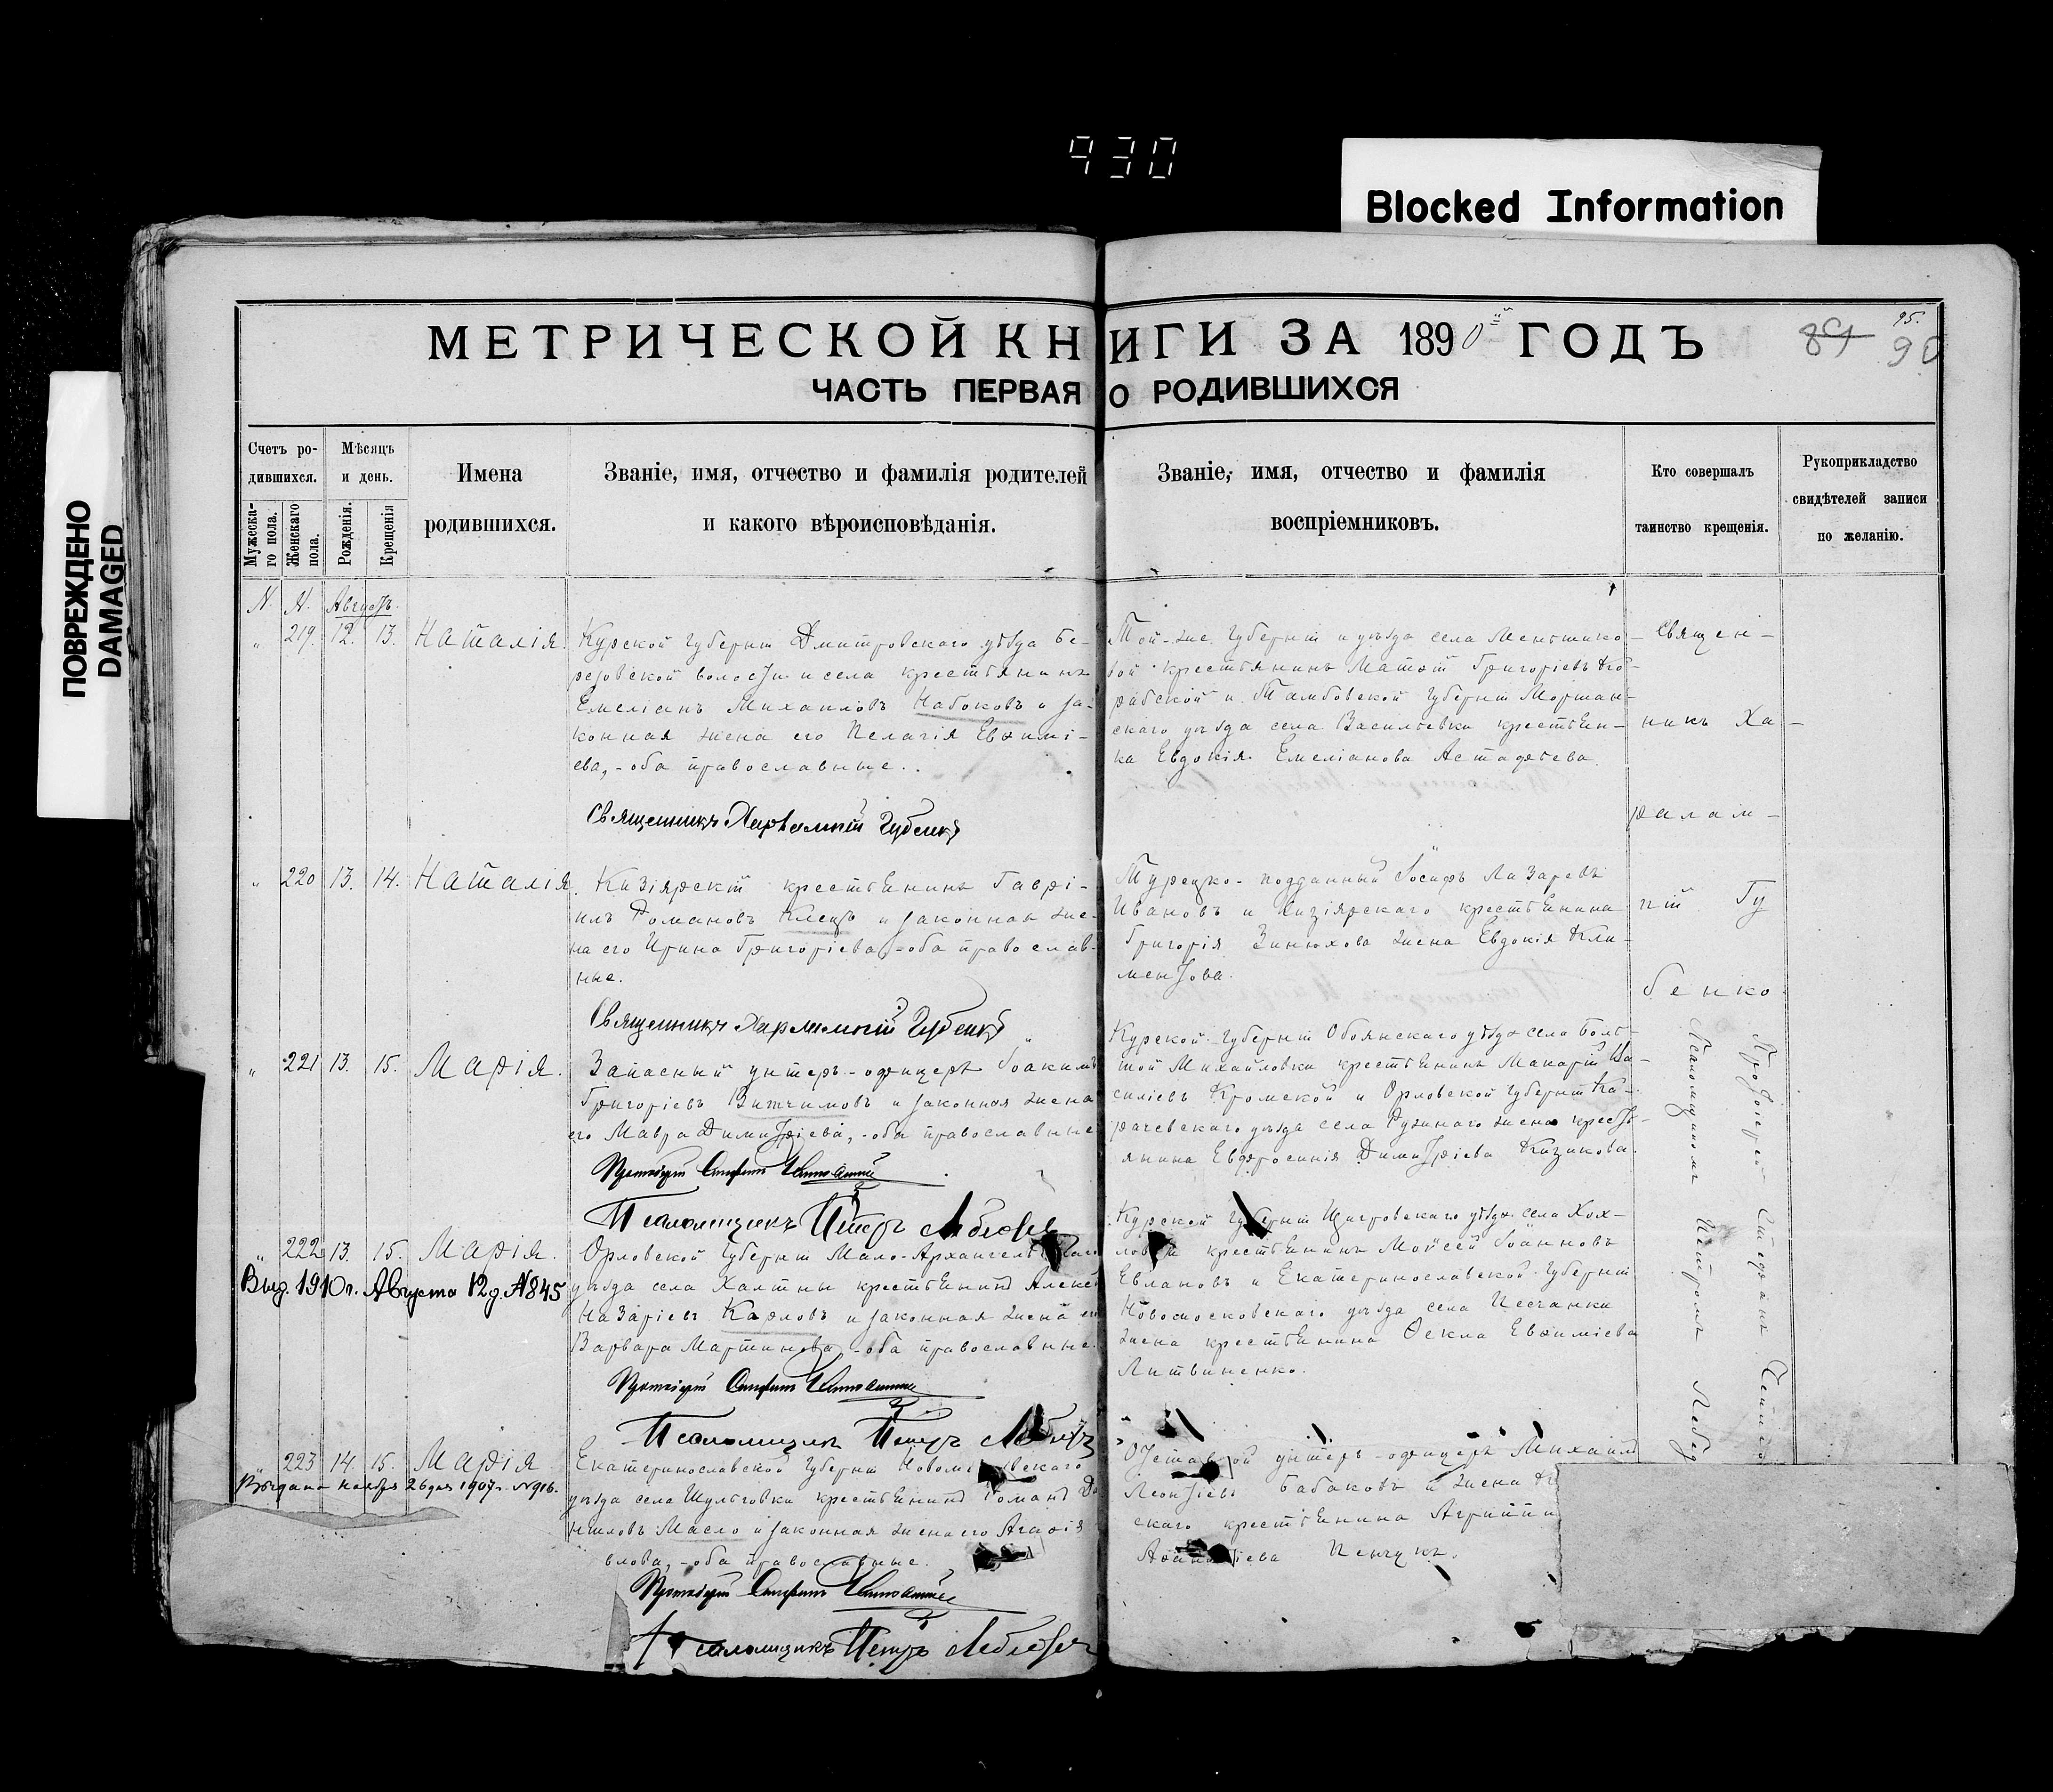 930
Blocked Information
ПОВРЕЖДЕНО
DAMAGED
МЕТРИЧЕСКОЙ КНИГИ ЗА 1890й ГОДЪ
89 95.
90
ЧАСТЬ ПЕРВАЯ О РОДИВШИХСЯ
Счетъ ро-
дившихся.
Мужеска-
го пола.
Женскаго
пола.
Мѣсяцъ
и день.
Рожденія.
Крещенія
Имена
родившихся.
Званіе, имя, отчество и фамилія родителей
и какого вѣроисповѣданія.
Званіе, имя, отчество и фамилія
воспріемниковъ.
Кто совершалъ
таинство крещенія.
Рукоприкладство
свидѣтелей записи
по желанію.
N. N. Августъ.
" 219. 12. 13. Наталія.
Курской губерніи Дмитровскаго уѣзда Бе-
резовской волости и села крестьянинъ
Емеліанъ Михаиловъ Набоковъ и за-
конная жена его Пелагія Евѳимі-
ева, - оба православные.
Священникъ Харлампій Губенко
Той-же губерніи и уѣзда села Меньшико-
вой крестьянинъ Матѳій Григоріевъ
и Тамбовской губерніи Моршан-
скаго уѣзда села Васильевки крестьян-
ка Евдокія Емеліанова Астафьева.
" 220 13. 14. Наталія.
Кизіярскій крестьянинъ Гаврі-
илъ Романовъ и законная же-
на его Ирина Григоріева, - оба православ-
ные.
Священникъ Харлампій Губенко
Турецко-подданный Іосифъ Лазаревъ
Ивановъ и Кизіярскаго крестьянина
Григорія Зинюхова жена Евдокія Кли-
ментова.
" 221 13. 15. Марія.
Запасный унтеръ-офицеръ Іоакимъ
Григоріевъ и законная жена
его Мавра Димитріева, - оба православные
Протоіерей Стефанъ
Псаломщикъ Петръ Лебедевъ
Курской губерніи Обоянскаго уѣзда села Боль-
шой Михайловки крестьянинъ Макарій Ва-
силіевъ Кромской и Орловской губерніи Ка-
рачевскаго уѣзда села жена кресть-
янина Евфросинія Димитріева Казикова.
" 222 13. 15. Марія.
Выд. 1910 г. Августа 12 д. N 845
Орловской губерніи Мало-Архангельскаго
уѣзда села крестьянинъ Алексѣй
Назаріевъ Карловъ и законная жена его
Варвара Мартинова, - оба православные.
Протоіерей Стефанъ
Псаломщикъ Петръ Лебедевъ
Курской губерніи Щигровскаго уѣзда села Хох-
ловки крестьянинъ Мойсей Іоанновъ
Евлановъ и Екатеринославской губерніи
Новомосковскаго уѣзда села Песчанки
жена крестьянина Ѳекла Евѳиміева
Литвиненко.
" 223 14. 15. Марія
Выдана ноября 26 дня 1907 г. N 916.
Екатеринославской губерніи Новомосковскаго
уѣзда села Шульговки крестьянинъ Романъ
Масло и законная жена его Агаѳія
влова, - оба православные.
Протоіерей Стефанъ
Псаломщикъ Петръ Лебедевъ
Отставной унтеръ-офицеръ Михаилъ
Леонтіевъ Бабаковъ и жена
скаго крестьянина
Священ-
никъ Ха-
рлам-
пій Гу
бенко
Протоіерей Стефанъ
Псаломщикомъ Петромъ Лебед